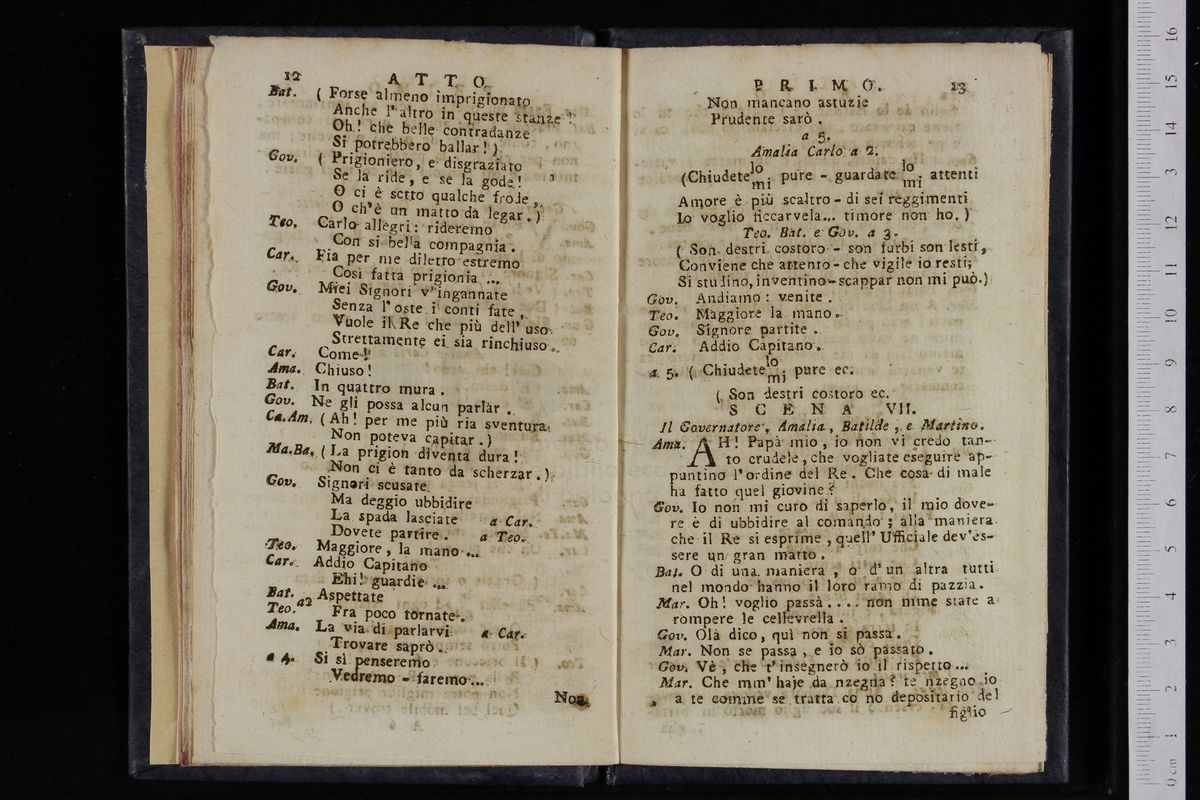 12 ATTO
Bat. ( Forse almeno imprigionato
Anche l'altro in queste stanze !
Oh! che belle contradanze
Si potrebbero ballar! )
Gov. ( Prigioniero, e disgraziato
Se la ride, e se la gode!
O ci è sotto qualche frode,
O ch'è un matto da legar. )
Teo. Carlo allegri: rideremo
Con si bella compagnia.
Car. Fia per me diletto estremo
Così fatta prigionia ...
Gov. Miei Signori v'ingannate
Senza l'oste i conti fate,
Vuole il Re che più dell'uso
Strettamente ei sia rinchiuso.
Car. Come!
Ama. Chiuso!
Bat. In quattro mura.
Gov. Ne gli possa alcun parlàr.
Ca.Am. (Ah! per me più ria sventura
Non poteva capitar.)
Ma.Ba. ( La prigion diventa dura!
Non ci è tanto da scherzar.)
Gov. Signori scusate
Ma deggio ubbidire
La spada lasciate a Car.
Dovete partire. a Teo.
Teo. Maggiore, la mano ...
Car. Addio Capitano
Ehi! guardie ...
Bat. Aspettate
Teo. a2 Fra poco tornate.
Ama. La via di parlarvi a Car.
Trovare saprò.
a 4. Si sì penseremo
Vedremo - faremo ...
Non
PRIMO. 13
Non mancano astuzie
Prudente sarò.
a 5.
Amalia Carlo a 2.
(Chiudete lo mi pure - guardate lo mi. attenti
Amore è più scaltro - di sei reggimenti
Io voglio ficcarvela... timore non ho. )
Teo. Bat. e Gov. a 3.
( Son destri costoro - son furbi son lesti,
Conviene che attento - che vigile io resti;
Si studino, inventino - scappar non mi può.)
Gov. Andiamo: venite.
Teo. Maggiore la mano.
Gov. Signore partite.
Car. Addio Capitano.
a 5. ( Chiudete lo mi. pure ec.
( Son destri costoro ec.
SCENA VII.
Il Governatore, Amalia, Batilde, e Martino.
Ama. AH! Papà mio, io non vi credo tan-
to crudele, che vogliate eseguire ap-
puntino l'ordine del Re. Che cosa di male
ha fatto quel giovine?
Gov. Io non mi curo di saperlo, il mio dove-
re è di ubbidire al comando; alla maniera
che il Re si esprime, quell'Ufficiale dev'es-
sere un gran matto.
Bat. O di una maniera, o d'un altra tutti
nel mondo hanno il loro ramo di pazzia.
Mar. Oh! voglio passà.... non mme state a
rompere le cellevrella.
Gov. Olà dico, quì non si passa.
Mar. Non se passa, e io sò passato.
Gov. Vè, che t'insegnerò io il rispetto...
Mar. Che mm'haje da nzegna? te nzegno io
a te comme se tratta co no depositario del
figlio